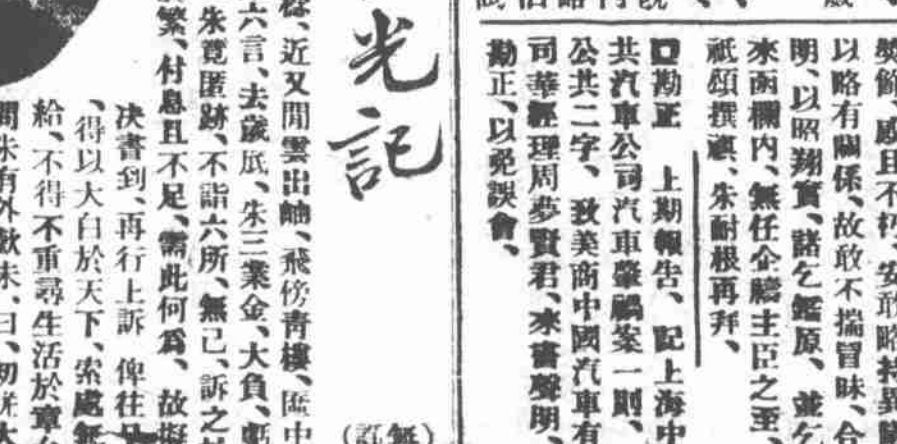 獎飾、感且不朽、安敢略持異
以略有關係、故敢不揣冒昧、
明、以昭翔實、諸乞鑑原、並乞
來函欄內、無任企禱主臣之至、
祇頌撰祺、朱耐根再拜、
口勘正　上期報告、記上海中
共汽車公司汽車肇禍案一則、
公共二字、致美商中國汽車有
司華經理周夢賢君、來書聲明、
勘正、以免誤會、
光記
近又聞雲出岫、飛傍青樓、匿中
六言、去歲底、朱三業金、大負、虧
朱竟匿跡、不詣六所、無已、訴之
繁、付息且不足、需此何爲、故擬
决書到、再行上訴　俾往
、得以大白於天下、索處無
給、不得不重尋生活於章
朱有外歡未、曰、初
（無